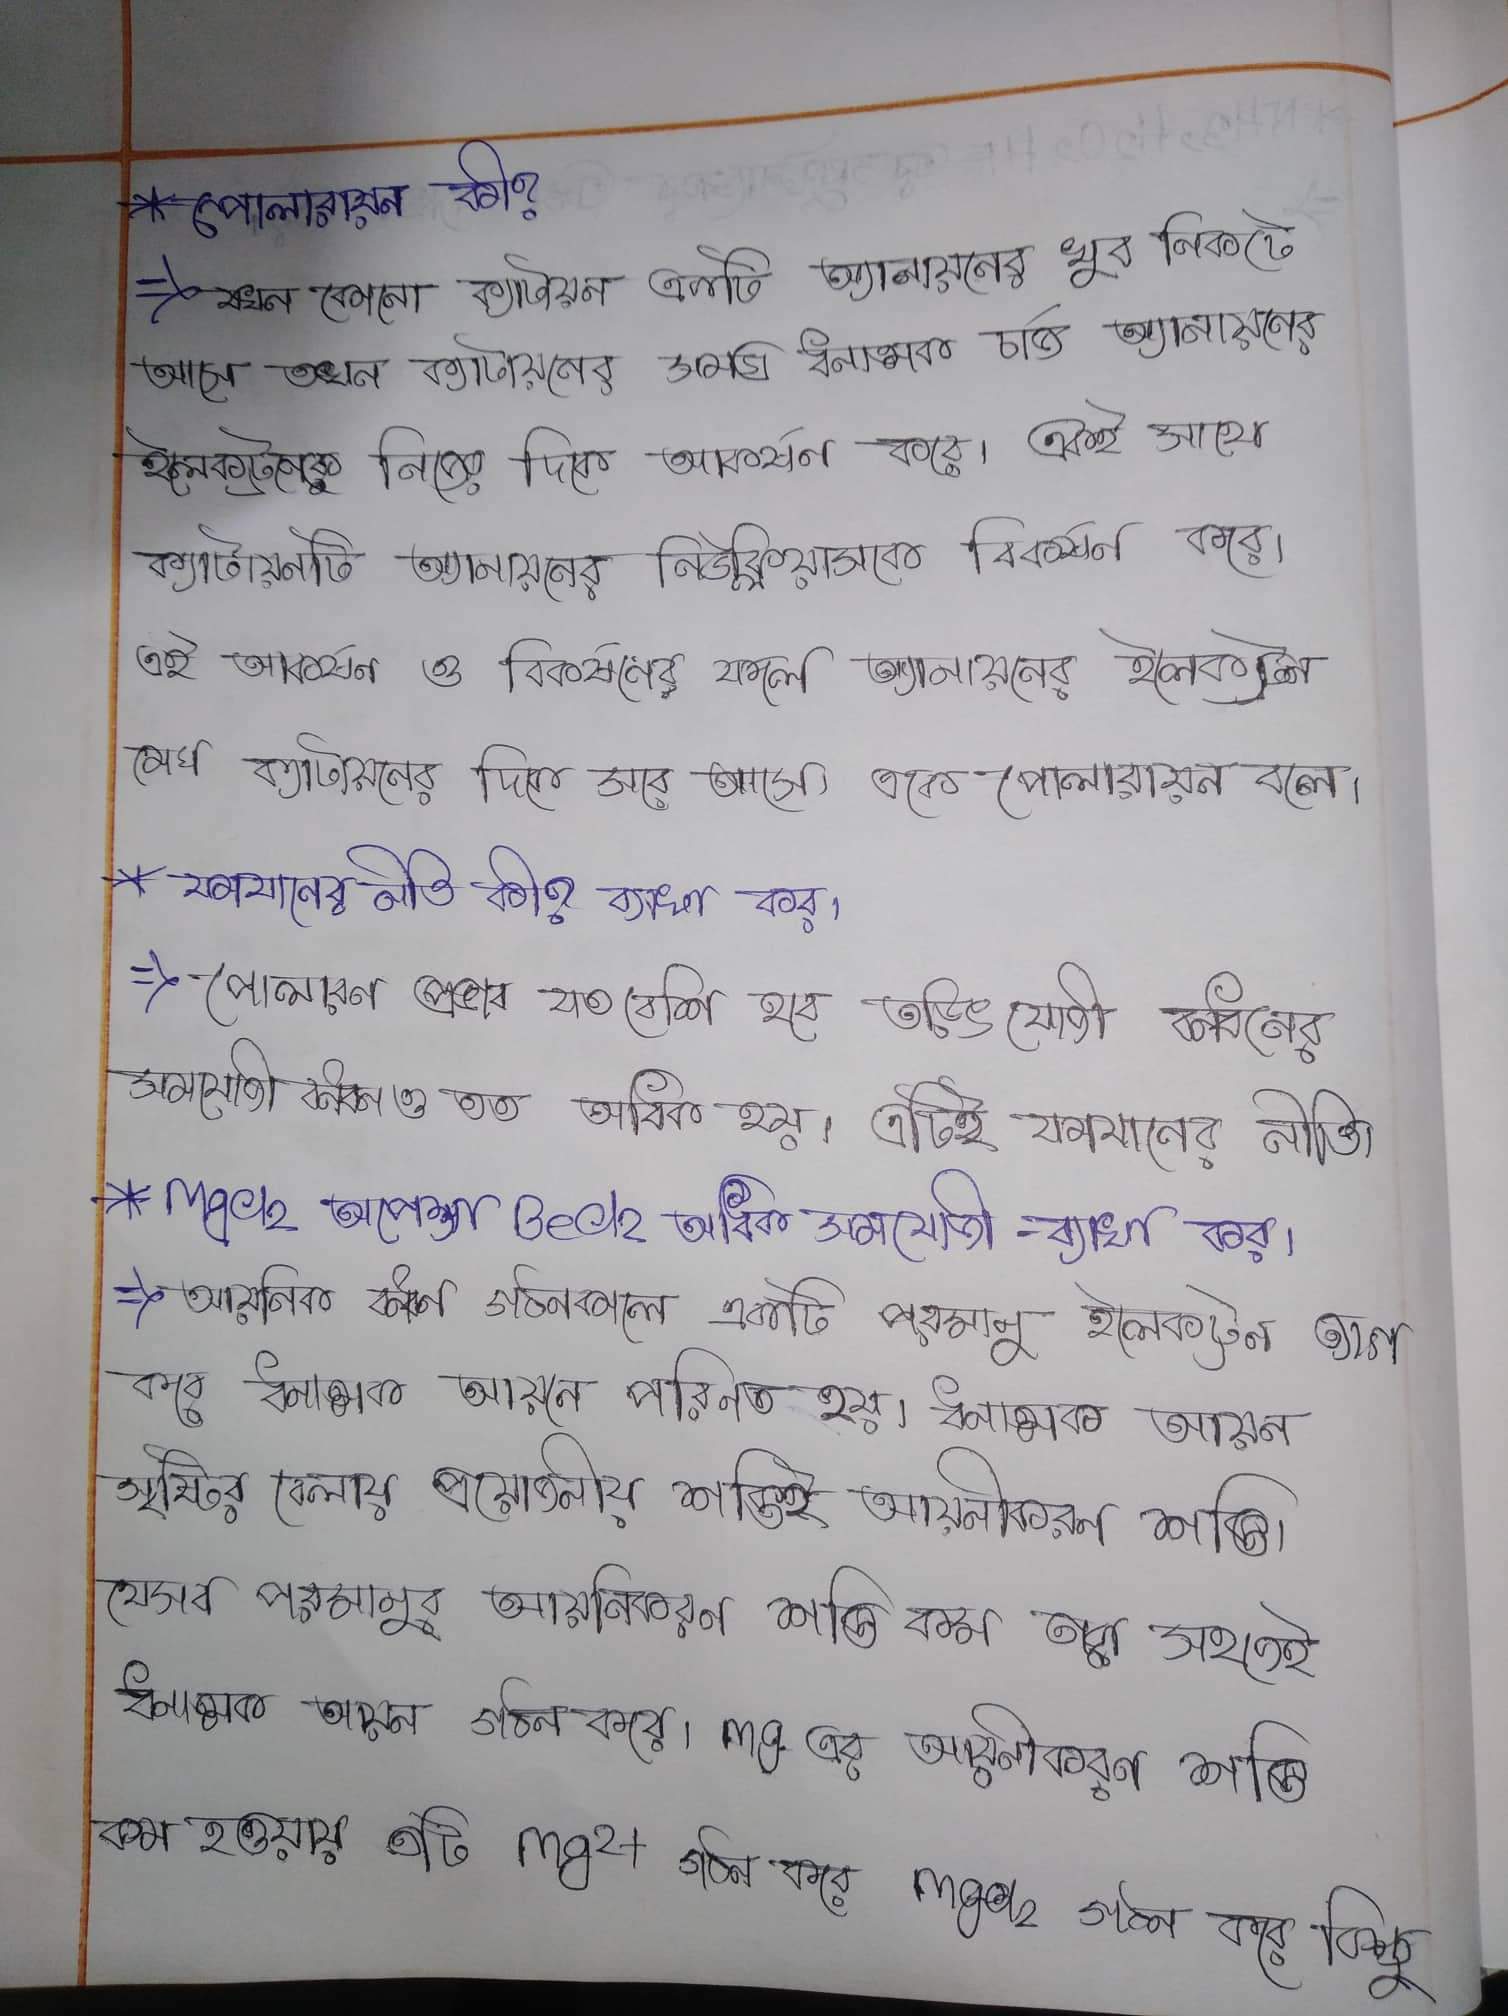 * পোলারায়ন কী?
⇒ যখন কোনো ক্যাটায়ন একটি অ্যানায়নের খুব নিকটে
আসে তখন ক্যাটায়নের সমগ্র ধনাত্মক চার্জ অ্যানায়নের
ইলেকট্রনকে নিজের দিকে আকর্ষন করে। একই সাথে
ক্যাটায়নটি অ্যানায়নের নিউক্লিয়াসকে বিকর্ষন করে।
এই আকর্ষন ও বিকর্ষনের ফলে অ্যানায়নের ইলেকট্রন
মেঘ ক্যাটায়নের দিকে সরে আসে। একে পোলারায়ন বলে।
* ফাযানের নীতি কী? ব্যাখা কর।
⇒ পোলারন প্রভাব যত বেশি হবে তড়িৎযোজী বন্ধনের
সমযোজী বন্ধন ও তত অধিক হয়। এটিই ফাযানের নীতি।
* MgCl2 অপেক্ষা BeCl2 অধিক সমযোজী - ব্যাখা কর।
⇒ আয়নিক বন্ধন গঠনকালে একটি পরমানু ইলেকট্রন ত্যাগ
করে ধনাত্মক আয়নে পরিনত হয়। ধনাত্মক আয়ন
সৃষ্টির বেলায় প্রয়োজনীয় শক্তিই আয়নীকরন শক্তি।
যেসব পরমানুর আয়নিকরন শক্তি কম তারা সহজেই
ধনাত্মক আয়ন গঠন করে। Mg এর আয়নীকরণ শক্তি
কম হওয়ায় এটি Mg2+ গঠন করে MgCl2 গঠন করে কিন্তু